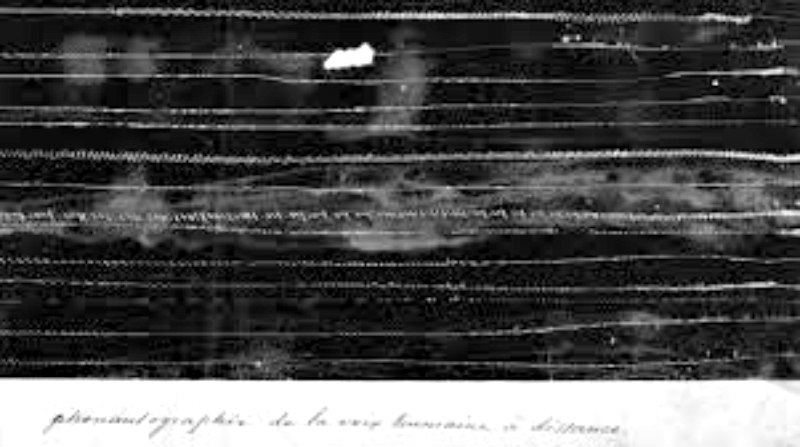 phonautographie de la voix humaine à distance